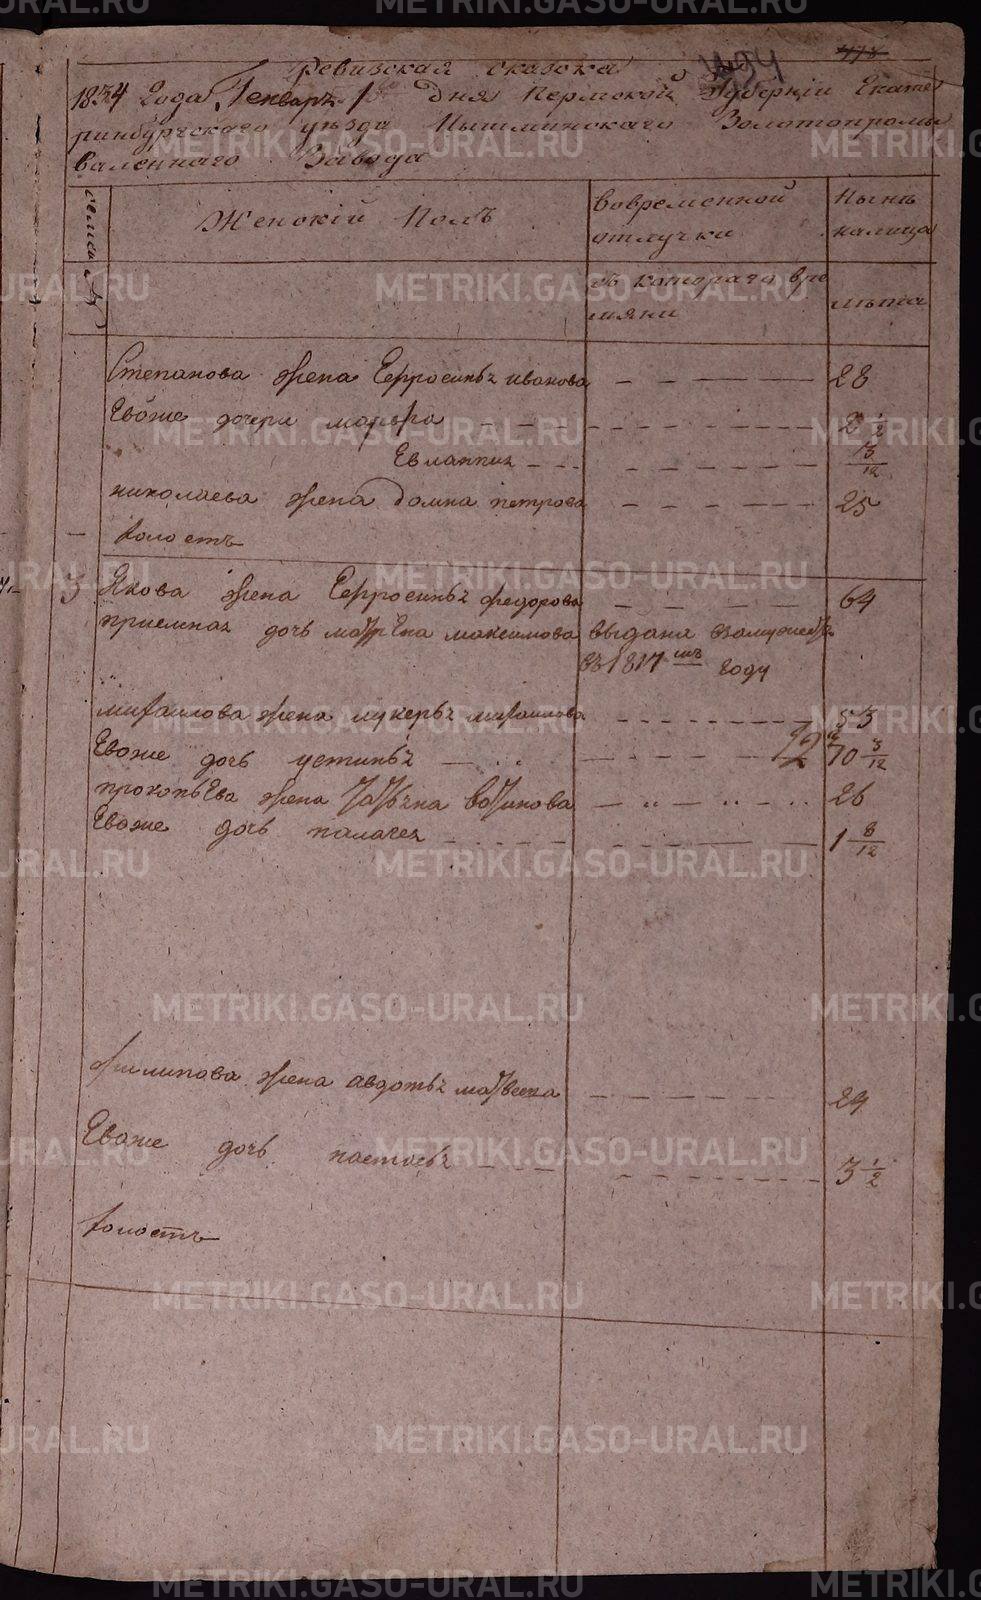 478
494
Ревизская сказка
1834 Года Генваря 1 дня Пермской Губернiи Екате
ринбургскаго уѣзда Пышминскаго Золотопромы
валеннаго Завода
семьи №
Женскiй Полъ
Вовременной
отлучкѣ
Нынѣ
налицо
съ котораго вре
мяни
лѣта
Степанова жена Ефросинья иванова 28
Еѣоже дочери марфа 2 1/2
Евлампия 3/12
николаева жена Домна петрова 25
холостъ
3 Якова жена Ефросинья федорова 64
приемная дочь матрена максимова выдана взамужество
въ 1817мъ году
михаилова жена лукерья михаилова 53
Еѣоже дочь устинья 10 3/12
прокопьева жена татьяна вотинова 26
Еѣоже дочь палагея 1 8/12
филипова жена авдотья матвеева 29
Еѣоже дочь настасья 3 1/2
холостъ
METRIKI.GASO-URAL.RU